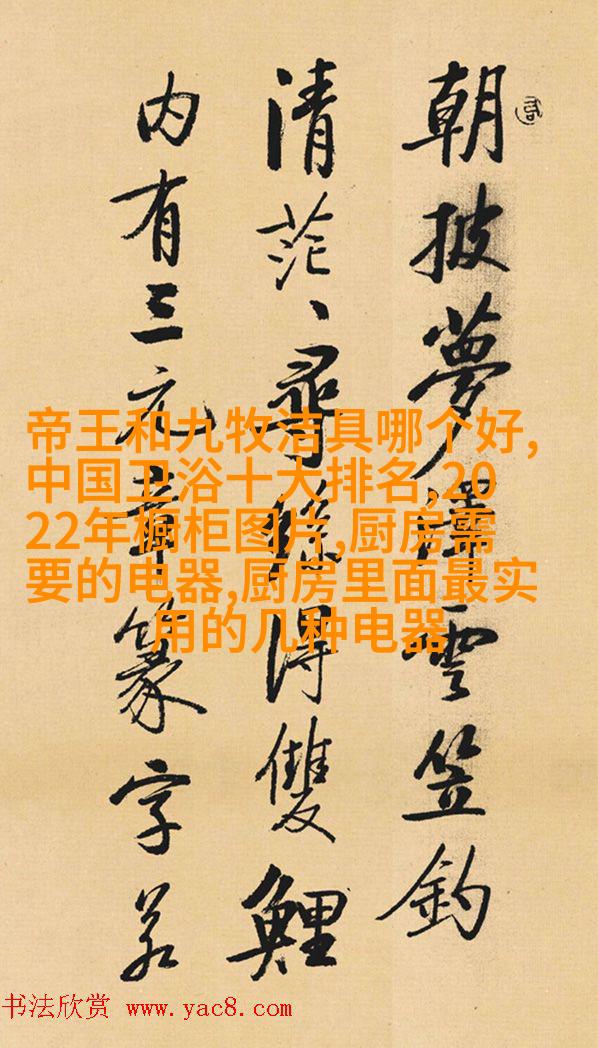 朝披夢澤雲笠釣
清茫、尋絲得雙鯉
内有三元章篆字若
帝王和九牧洁具哪个好,
中国卫浴十大排名,20
22年橱柜图片,厨房需
要的电器,厨房里面最实
用的几种电器
书法欣赏 www.yac8.com